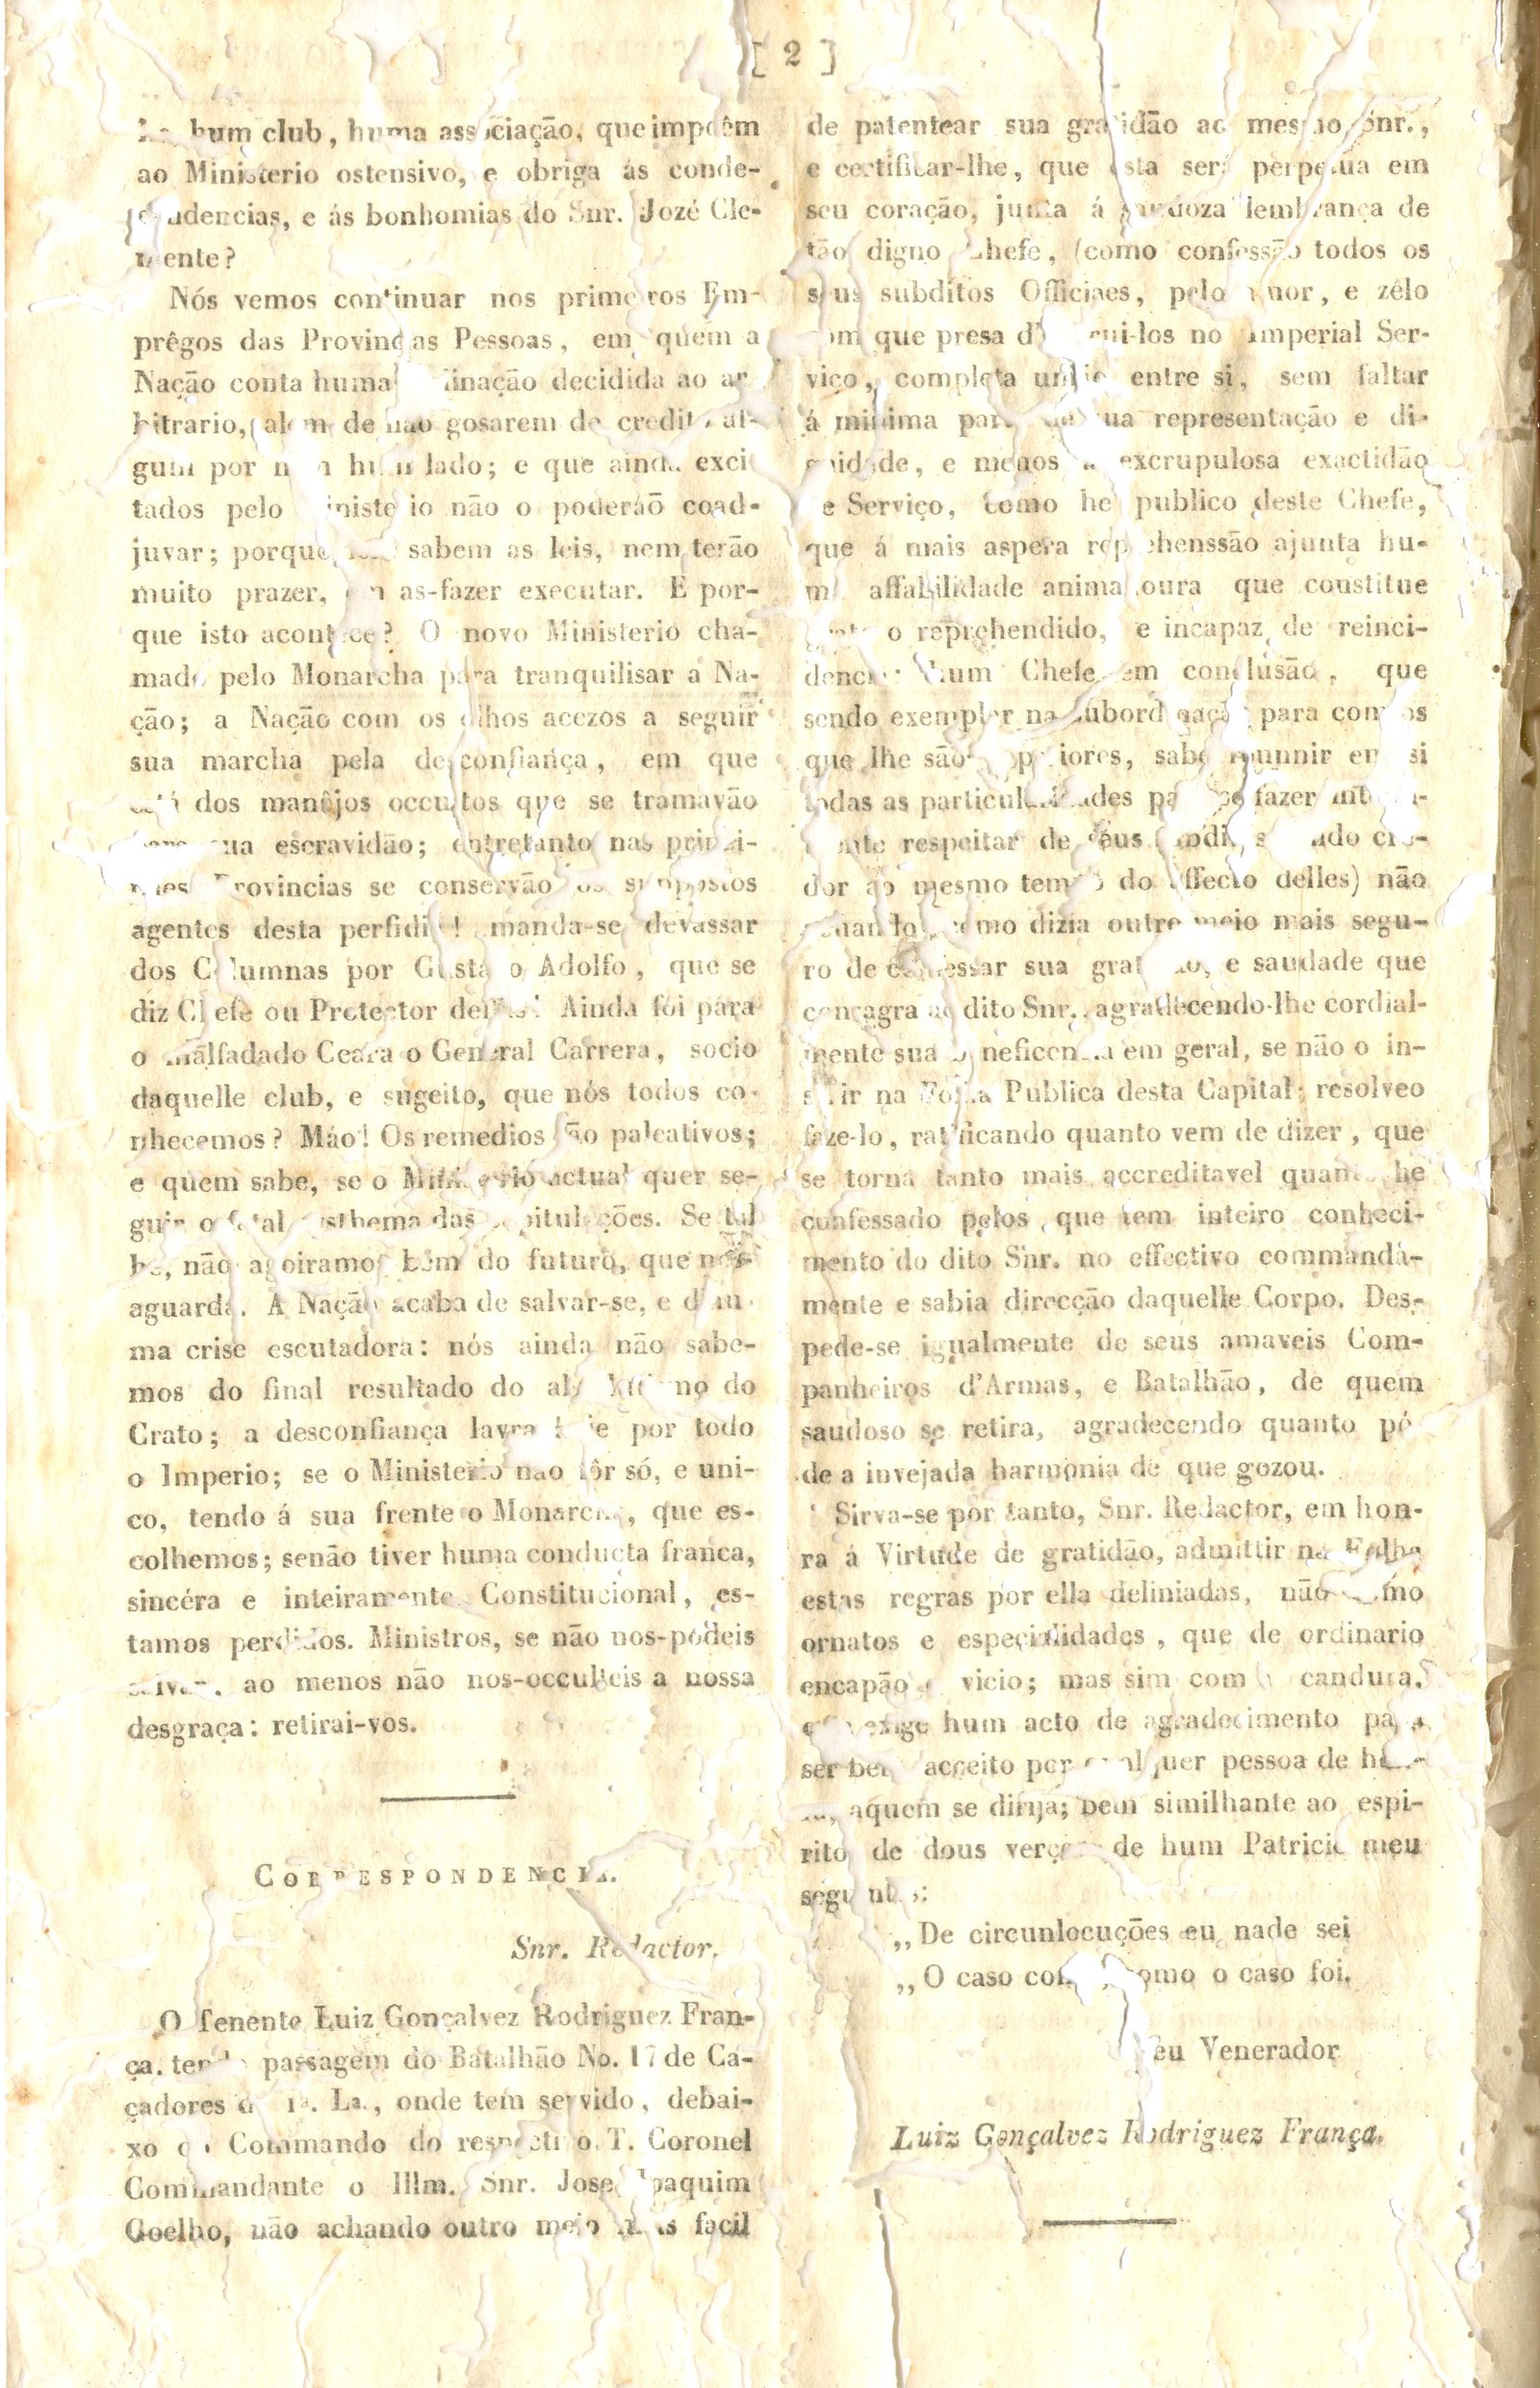 [ 2 ]
hum club, huma associação, que impoêm
ao Ministerio ostensivo, e obriga ás conde-
e ás bonhomias do Snr. Jozé Cle-
mente?
Nós vemos continuar nos primeiros Em-
prêgos das Provincias Pessoas, em quem a
Nação conta huma decidida ao ar-
bitrario, (alem de não gosarem de credito al-
gum por nem hum lado; e que ainda exci-
tados pelo Ministerio não o poderáõ coad-
juvar; porque sabem as leis, nem terão
muito prazer, em as-fazer executar. E por-
que isto acontece? O novo Ministerio cha-
mado pelo Monarcha para tranquilisar a Na-
ção; a Nação com os olhos acezos a seguir
sua marcha pela desconfiança, em que
dos manêjos occultos que se tramavão
sua escravidão; entretanto nas princi-
Provincias se conservão os suppostos
agentes desta perfidia! manda-se devassar
dos Columnas por Gustavo Adolfo, que se
diz Chefe ou Protector delles! Ainda foi para
o malfadado Ceara o General Carrera, socio
daquelle club, e sugeito, que nós todos co-
nhecemos? Máo! Os remedios são paleativos;
e quem sabe, se o Ministerio actual quer se-
guir o fatal systhema das capitulações. Se tal
he, não agoiramos bem do futuro, que nos
aguarda. A Nação acaba de salvar-se, e d'hu-
ma crise escutadora: nós ainda não sabe-
mos do final resultado do no do
Crato; a desconfiança lavra hoje por todo
o Imperio; se o Ministerio não fôr só, e uni-
co, tendo á sua frente o Monarcha, que es-
colhemos; senão tiver huma conducta franca,
sincéra e inteiramente Constitucional, es-
tamos perdidos. Ministros, se não nos-podeis
salvar, ao menos não nos-occulteis a nossa
desgraça: retirai-vos.
CORRESPONDENCIA.
Snr. Redactor.
O Tenente Luiz Gonçalvez Rodriguez Fran-
ça, tendo passagem do Batalhão No. 17 de Ca-
çadores da 1a. La., onde tem servido, debai-
xo do Commando do respectivo T. Coronel
Commandante o Illm. Snr. Jose Joaquim
Goelho, não achando outro meio mais facil
de patentear sua gratidão ao mesmo Snr.,
e certificar-lhe, que esta será perpetua em
seu coração, junta á saudoza lembrança de
tão digno Chefe, (como confessão todos os
seus subditos Officiaes, pelo amor, e zelo
com que presa no Imperial Ser-
viço, completa união entre si, sem faltar
á minima parte de sua representação e di-
gnidade, e menos a excrupulosa exactidão
de Serviço, como he publico deste Chefe,
que á mais aspera reprehenssão ajunta hu-
ma affabilidade animadoura que constitue
o reprehendido, e incapaz de reinci-
dencia: hum Chefe em conclusão, que
sendo exemplar na subordinação para com os
que lhe são superiores, sabe reunnir em si
todas as particularidades para se fazer
respeitar de seus subditos, sendo cre-
dor ao mesmo tempo do affecto delles) não
achando, como dizia outro meio mais segu-
ro de confessar sua gratidão, e saudade que
conçagra ao dito Snr., agradecendo-lhe cordial-
mente sua beneficencia em geral, se não o in-
serir na Folha Publica desta Capital; resolveo
faze-lo, ratificando quanto vem de dizer, que
se torna tanto mais accreditavel quanto he
confessado pelos que tem inteiro conheci-
mento do dito Snr. no effectivo commanda-
mente e sabia direcção daquelle Corpo. Des-
pede-se igualmente de seus amaveis Com-
panheiros d'Armas, e Batalhão, de quem
saudoso se retira, agradecendo quanto pó-
de a invejada harmonia de que gozou.
Sirva-se por tanto, Snr. Redactor, em hon-
ra á Virtude de gratidão, admittir na Folha
estas regras por ella deliniadas, não como
ornatos e especialidades, que de ordinario
encapão o vicio; mas sim com a candura,
que exige hum acto de agradecimento para
ser bem acceito por qualquer pessoa de
aquem se dirija; bem similhante ao espi-
rito de dous verços de hum Patricio meu
seguintes:
,, De circunlocuções eu nade sei
,, O caso conto, como o caso foi.
Seu Venerador
Luiz Gonçalvez Rodriguez França.